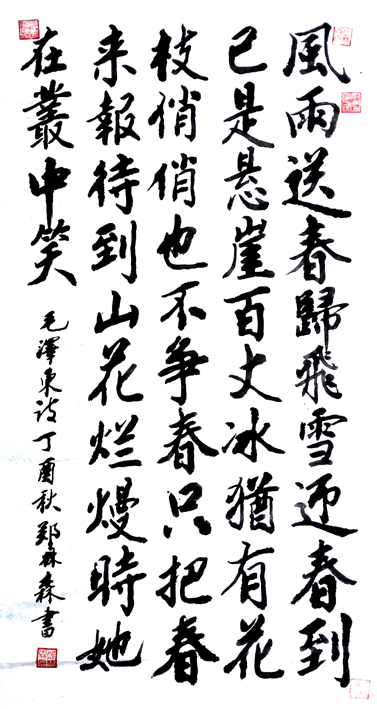 風雨送春歸飛雪迎春到
已是悬崖百丈冰猶有花
枝俏俏也不争春只把春
来報待到山花烂熳時她
在叢中笑
毛澤東诗丁酉秋鄭林森書